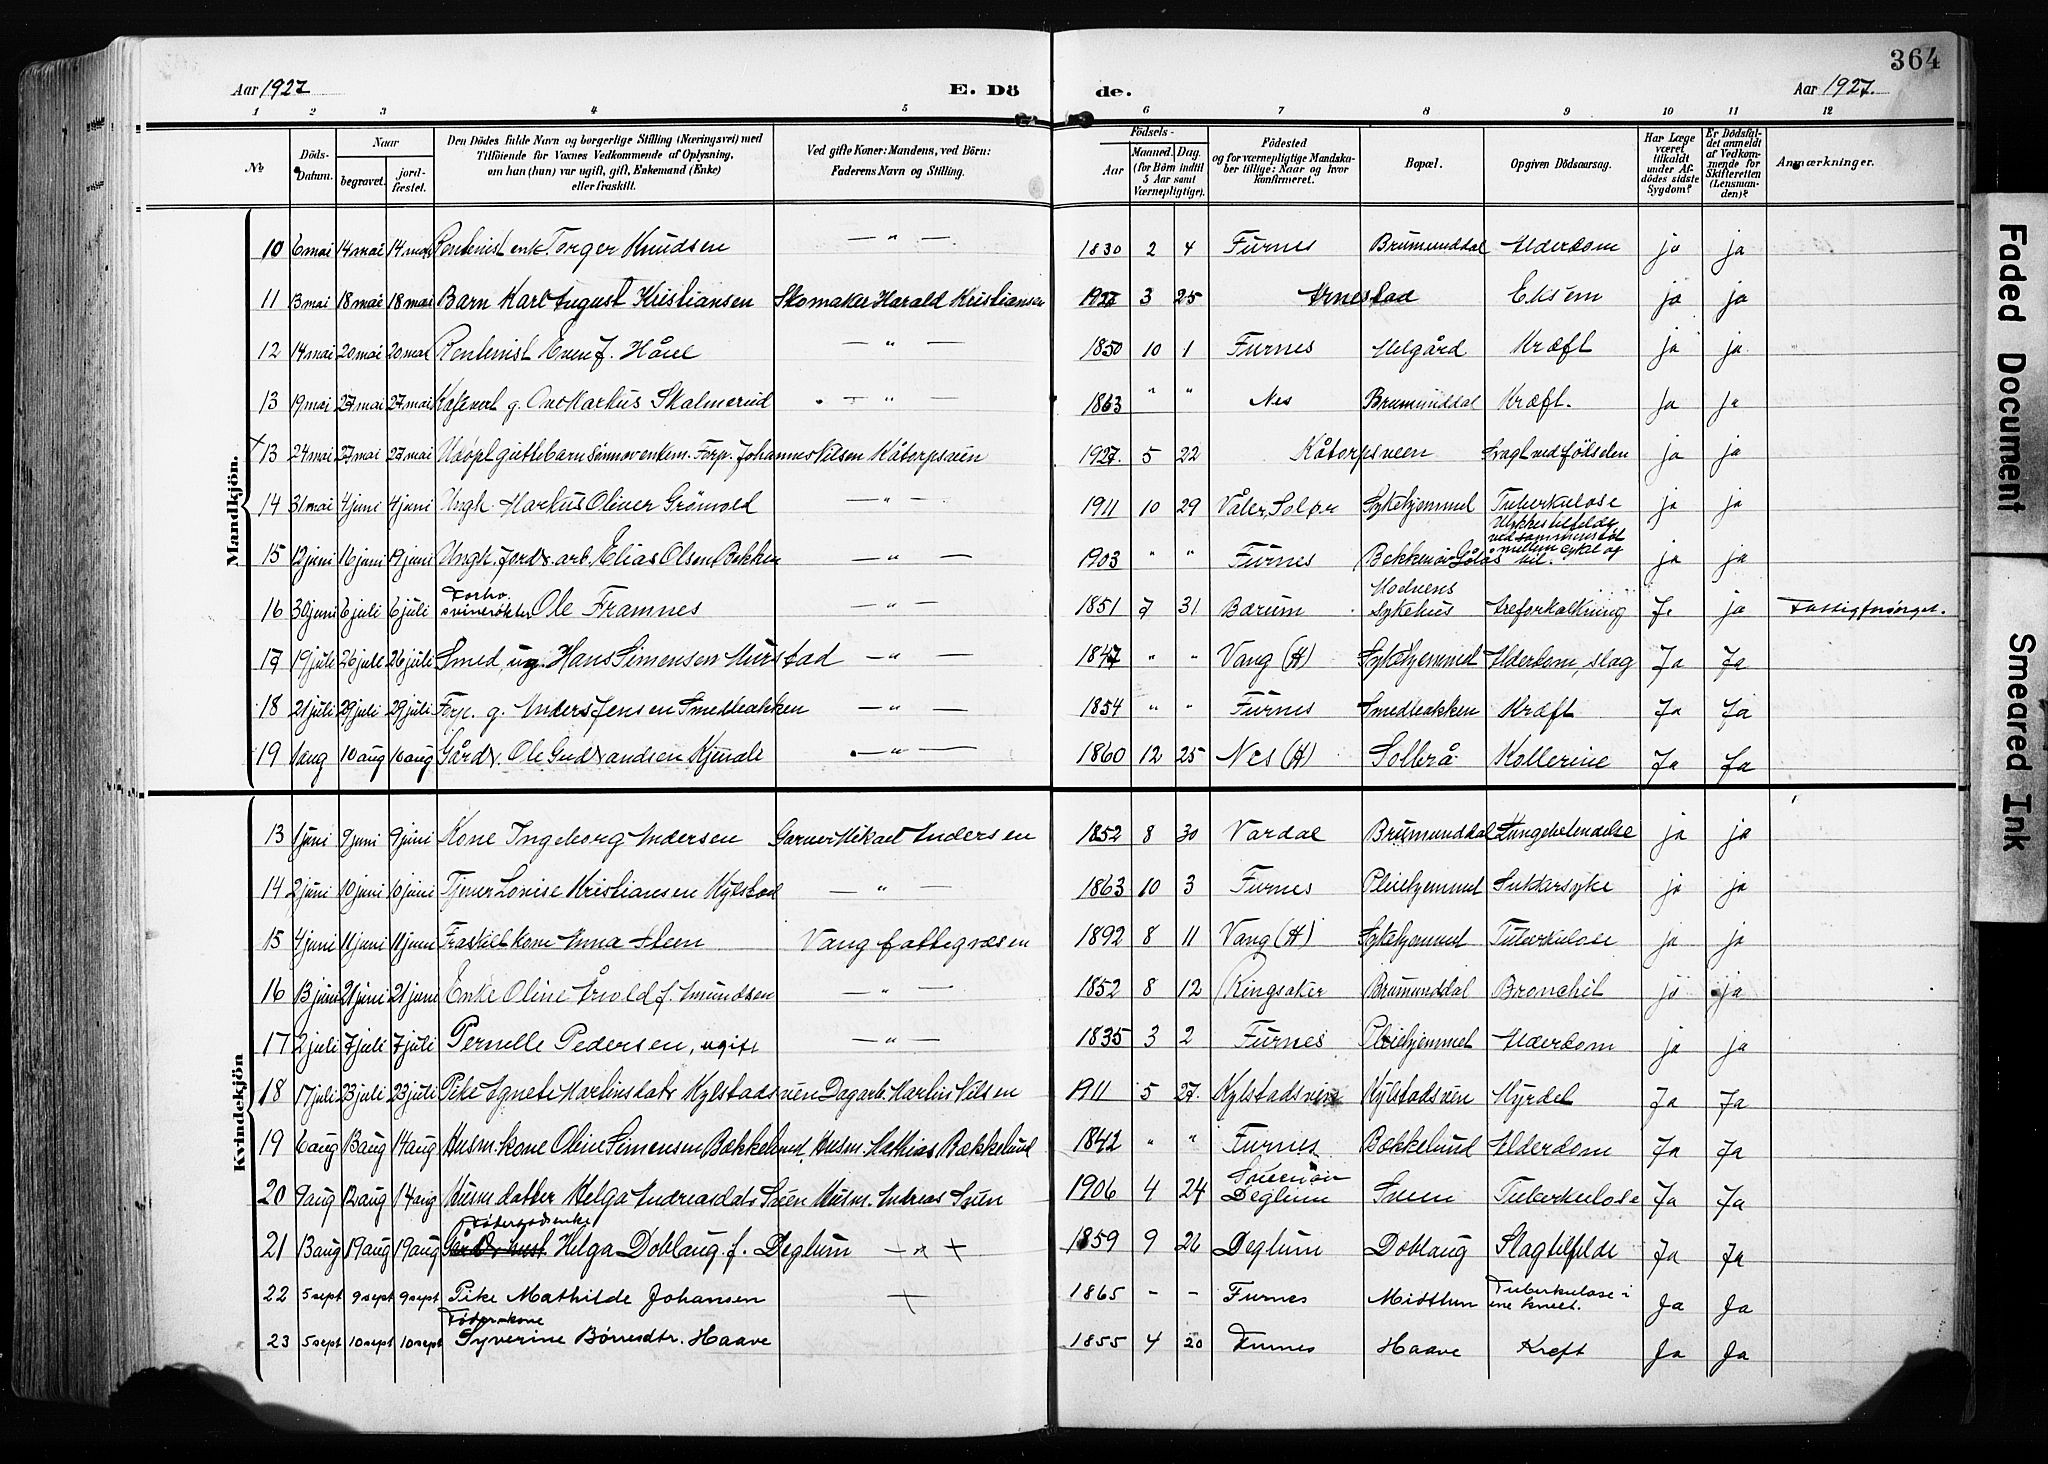 364
Aar 1927 E. Dö de. Aar 1927.
1 2 3 4 5 6 7 8 9 10 11 12
No Döds-Datum. Naar begravet. jordfæstet. Den Dödes fulde Navn og borgerlige Stilling (Næringsvei) med Tilföiende for Voxnes Vedkommende af Oplysning, om han (hun) var ugift, gift, Enkemand (Enke) eller fraskilt. Ved gifte Koner: Mandens, ved Börn: Faderens Navn og Stilling. Födsels- Aar Maaned. Dag. (for Börn indtil 5 Aar samt Værnepligtige). Födested og for værnepligtige Mandskaber tillige: Naar og hvor konfirmeret. Bopæl. Opgiven Dödsaarsag. Har Læge været tilkaldt under Afdödes sidste Sygdom? Er Dödsfaldet anmeldt af Vedkommende for Skifteretten (Lensmanden)? Anmærkninger.
Mandkjön.
10 6 mai 14 mai 14 mai Rentenist enk. Torger Knudsen — " — 1830 2 4 Furnes Brumunddal Alderdom ja ja
11 13 mai 18 mai 18 mai Barn Karl August Kristiansen Skomaker Harald Kristiansen 1927 3 25 Arnestad Eksem ja ja
12 14 mai 20 mai 20 mai Rentenist Even J. — " — 1850 10 1 Furnes Kræft ja ja
13 19 mai 27 mai 27 mai g. Ove Markus Skalmerud — " — 1863 " " Nes Brumunddal Kræft. Ja ja
13 24 mai 27 mai 27 mai Udöpt guttebarn Forp. Johannes Nilsen Kåtorpsveen 1927. 5 22 Kåtorpsveen Svagt ved födselen ja ja
14 31 mai 4 juni 4 juni Ungk. Markus Oliver Grönvold — " — 1911 10 29 Våler, Solør Sykehjemmet Tuberkulose ja ja
15 12 juni 16 juni 19 juni Ungk. Jordbr. arb. Elias Olsen Bekken — " — 1903 " " Furnes Ulykkestilfelde ved sammenstöt mellem cykel og bil. ja ja
16 30 juni 6 juli 6 juli Forhv. svinerøkter Ole Framnes — " — 1851 7 31 Bærum Modnens Sykehus Areforkalkning Ja ja Fattigforsörget.
17 19 juli 26 juli 26 juli Smed, ug. Hans Simensen Aurstad — " — 1847 " " Vang (H) Sykehjemmet Alderdom, slag Ja Ja
18 21 juli 29 juli 29 juli Forp. g. Anders Jensen Smedbakken — " — 1854 " " Furnes Smedbakken Kræft Ja Ja
19 1 aug 10 aug 10 aug Gårdbr. Ole Gudbrandsen Kjendle — " — 1860 12 25 Nes (H) Solbrå Kollerine Ja Ja
Kvindekjön
13 1 juni 9 juni 9 juni Kone Ingeborg Andersen Garver Mikael Andersen 1852 8 30 Vardal Brumunddal Lungebetendelse ja ja
14 2 juni 10 juni 10 juni Tjener Lovise Kristiansen Kylstad — " — 1863 10 3 Furnes Pleiehjemmet Sukkersyke ja ja
15 4 juni 11 juni 11 juni Fraskilt kone Anna Steen Vang fattigvæsen 1892 8 11 Vang (H) Sykehjemmet Tuberkulose ja ja
16 13 juni 21 juni 21 juni Enke Oline Åvold f. Amundsen — " — 1852 8 12 Ringsaker Brumunddal Bronchit ja ja
17 2 juli 7 juli 7 juli Pernelle Pedersen, ugift — " — 1835 3 2 Furnes Pleiehjemmet Alderdom ja ja
18 17 juli 23 juli 23 juli Pike Agnete Martinsdatr Kylstadsveen Dagarb. Martin Nilsen 1911 5 27. Kylstadsveen Kylstadsveen Myrdet Ja Ja
19 6 aug 13 aug 14 aug Husm. kone Oline Simensen Bækkelund, Husm. Mathias Bækkelund 1842 " " Furnes Bækkelund Alderdom Ja Ja
20 9 aug 12 aug 14 aug Husm datter Helga Andreasdatr Sveen Husm. Andreas Sveen 1906 4 24 Sveen av Deglum Sveen Tuberkulose Ja Ja
21 13 aug 19 aug 19 aug Föderådsenke Helga Doblaug f. Deglum — " — 1859 9 26 Deglum Doblaug Slagtilfelde Ja Ja
22 5 sept 9 sept 9 sept Pike Mathilde Johansen — 1865 - - Furnes Midtlun Tuberkulose i ene kneet. Ja Ja
23 5 sept 10 sept 10 sept Föder-kone Syverine Börresdtr. Haave 1855 4 20 Furnes Haave Kreft Ja Ja
Faded Document
Smeared Ink